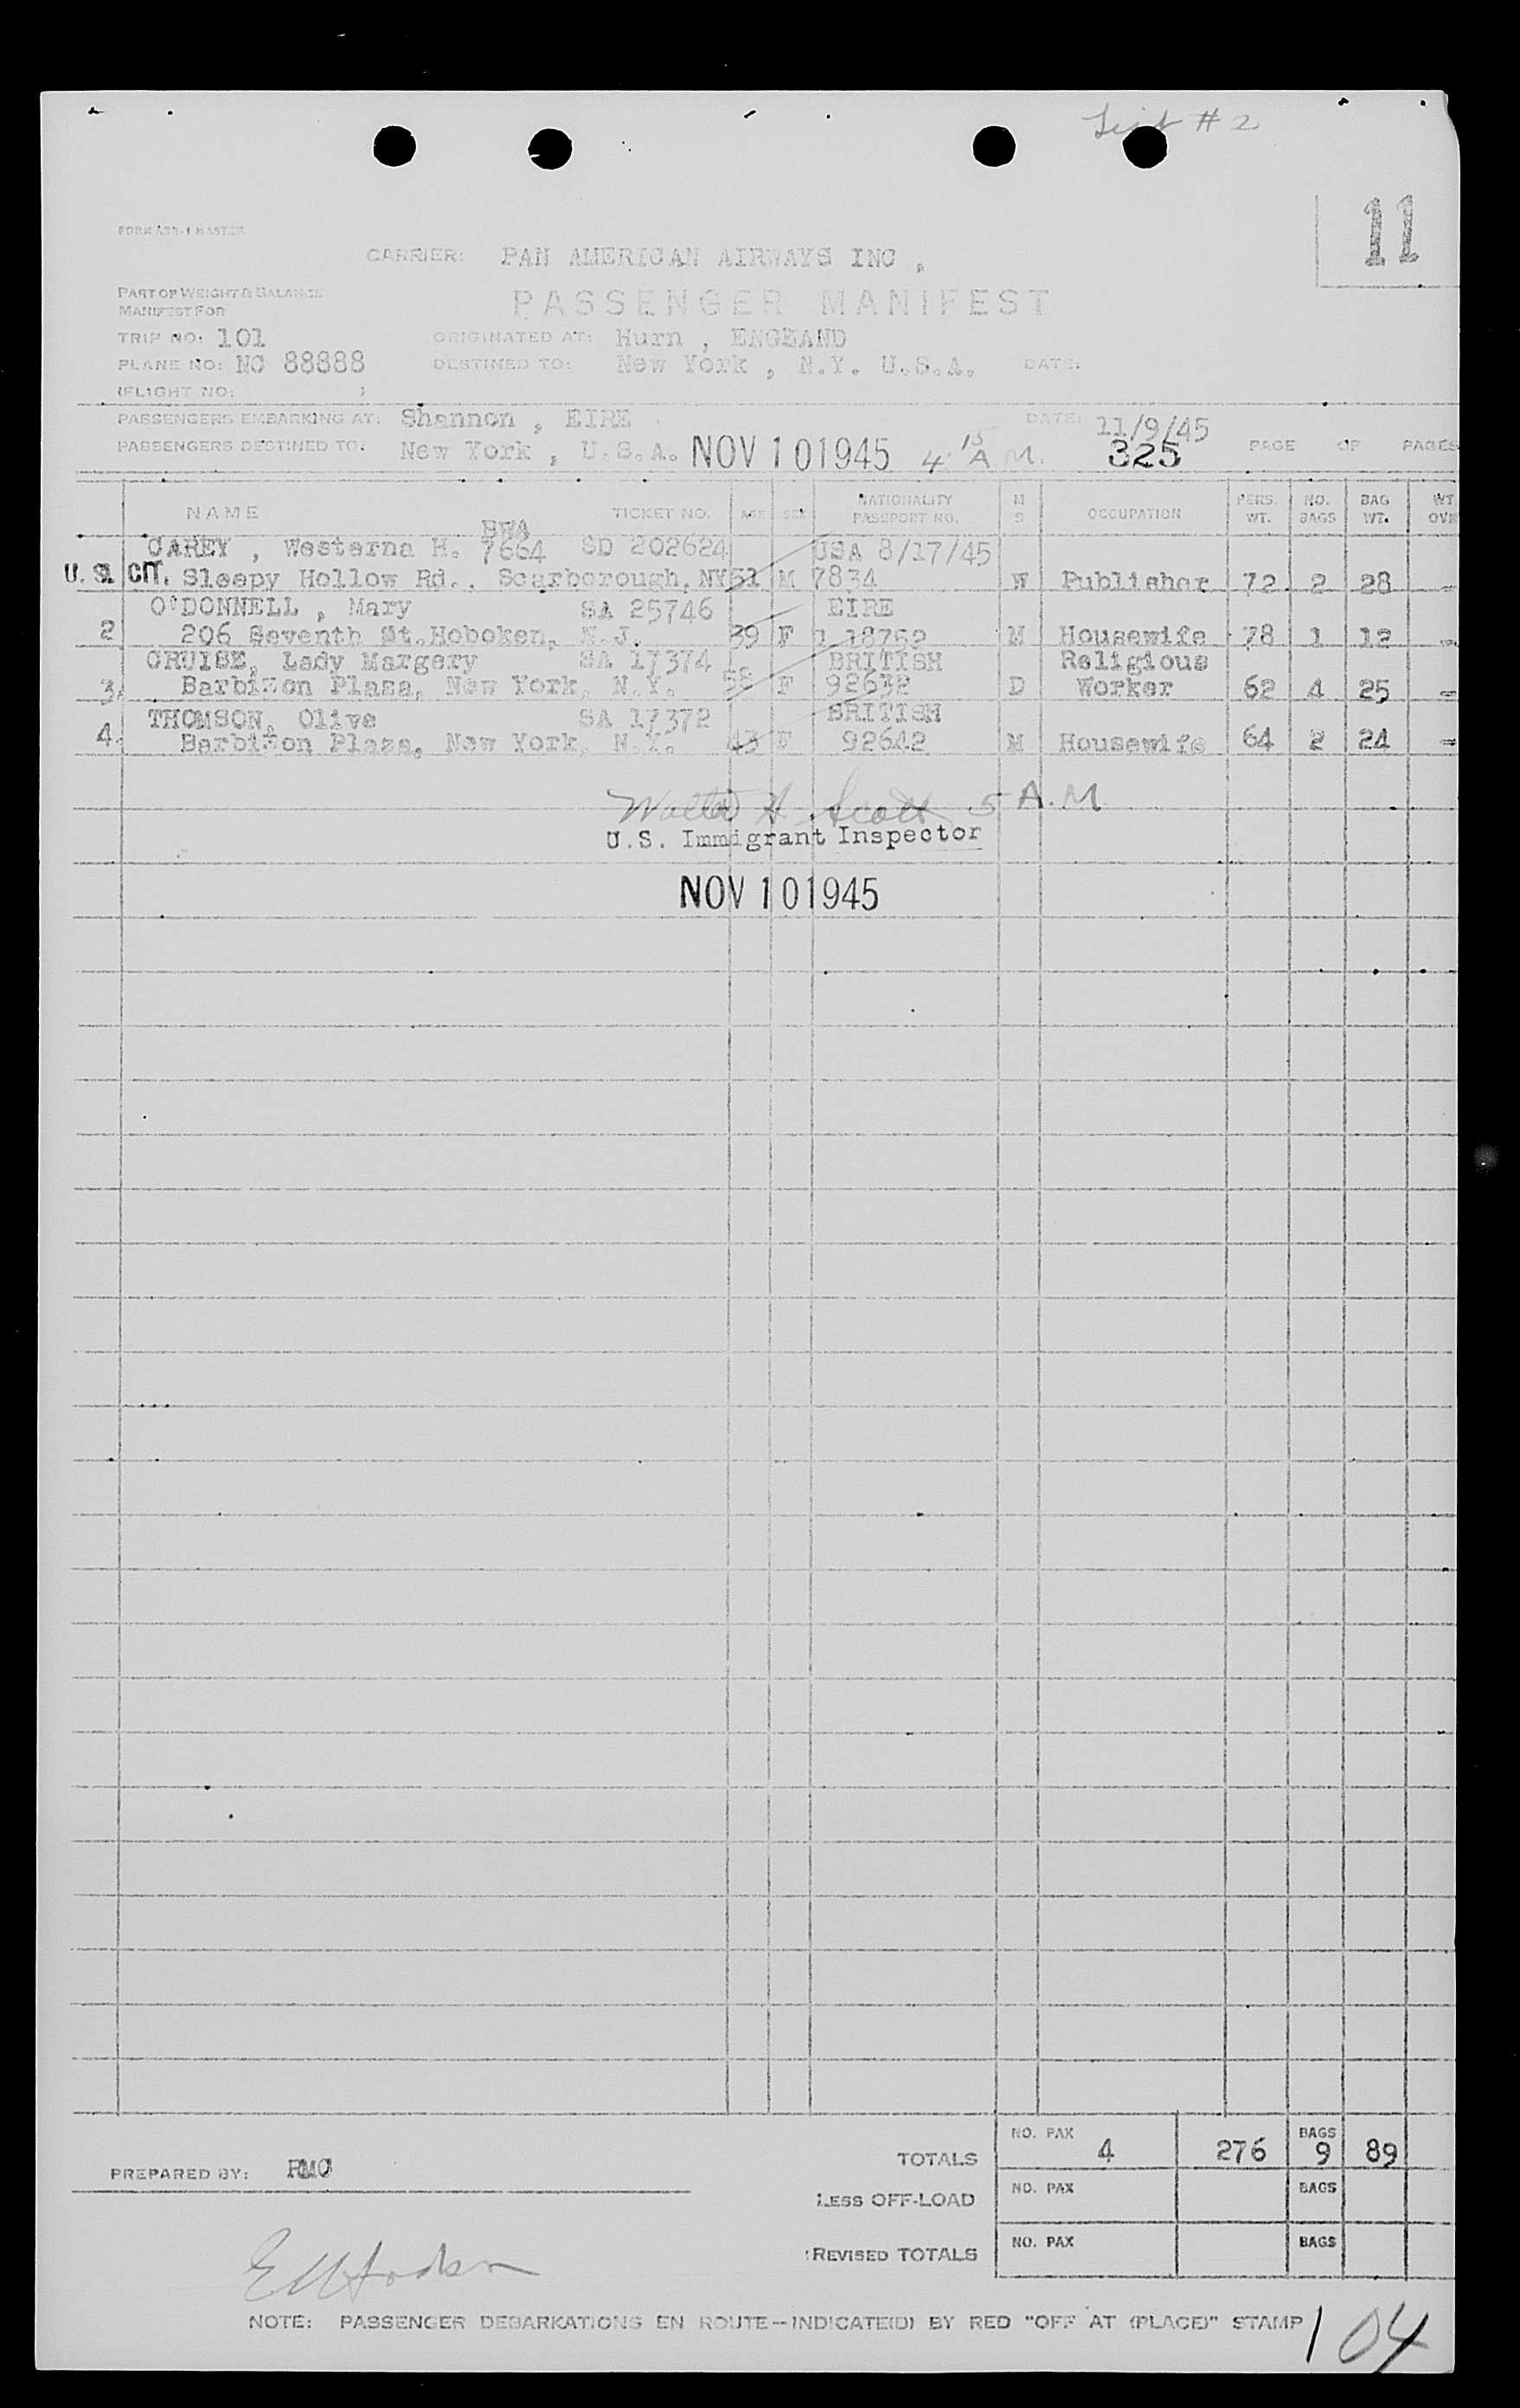 List # 2
11
FORM ASB-1 MASTER
CARRIER: PAN AMERICAN AIRWAYS INC ,
PART OF WEIGHT & BALANCE
MANIFEST FOR
PASSENGER MANIFEST
TRIP NO: 101 ORIGINATED AT: Hurn , ENGEAND
PLANE NO: NC 88888 DESTINED TO: New York , N.Y. U.S.A. DATE:
(FLIGHT NO: )
PASSENGERS EMBARKING AT: Shannon , EIRE DATE: 11/9/45
PASSENGERS DESTINED TO: New York , U.S.A. NOV 10 1945 4 15 A M. 325 PAGE OF PAGES
NAME TICKET NO. AGE SEX NATIONALITY PASSPORT NO. M S OCCUPATION PERS. WT. NO. BAGS BAG WT. WT OVR
BWA
CAREY , Westerna H. 7664 SD 202624 USA 8/17/45
U. S. CIT. Sleepy Hollow Rd., Scarborough, NY 51 M 7834 W Publisher 72 2 28 -
O'DONNELL , Mary SA 25746 EIRE
2 206 Seventh St. Hoboken, N.J. 39 F 1 18752 M Housewife 78 1 12 -
CRUISE, Lady Margery SA 17374 BRITISH Religious
3. Barbizon Plaza, New York, N.Y. 58 F 92632 D Worker 62 4 25 -
THOMSON, Olive SA 17372 BRITISH
4. Barbizon Plaza, New York, N.Y. 43 F 92642 M Housewife 64 2 24 -
Walter H Scott 5 A.M
U.S. Immigrant Inspector
NOV 10 1945
TOTALS NO. PAX 4 276 BAGS 9 89
PREPARED BY: RMC
LESS OFF-LOAD NO. PAX BAGS
REVISED TOTALS NO. PAX BAGS
NOTE: PASSENGER DEBARKATIONS EN ROUTE--INDICATE(D) BY RED "OFF AT (PLACE)" STAMP
104